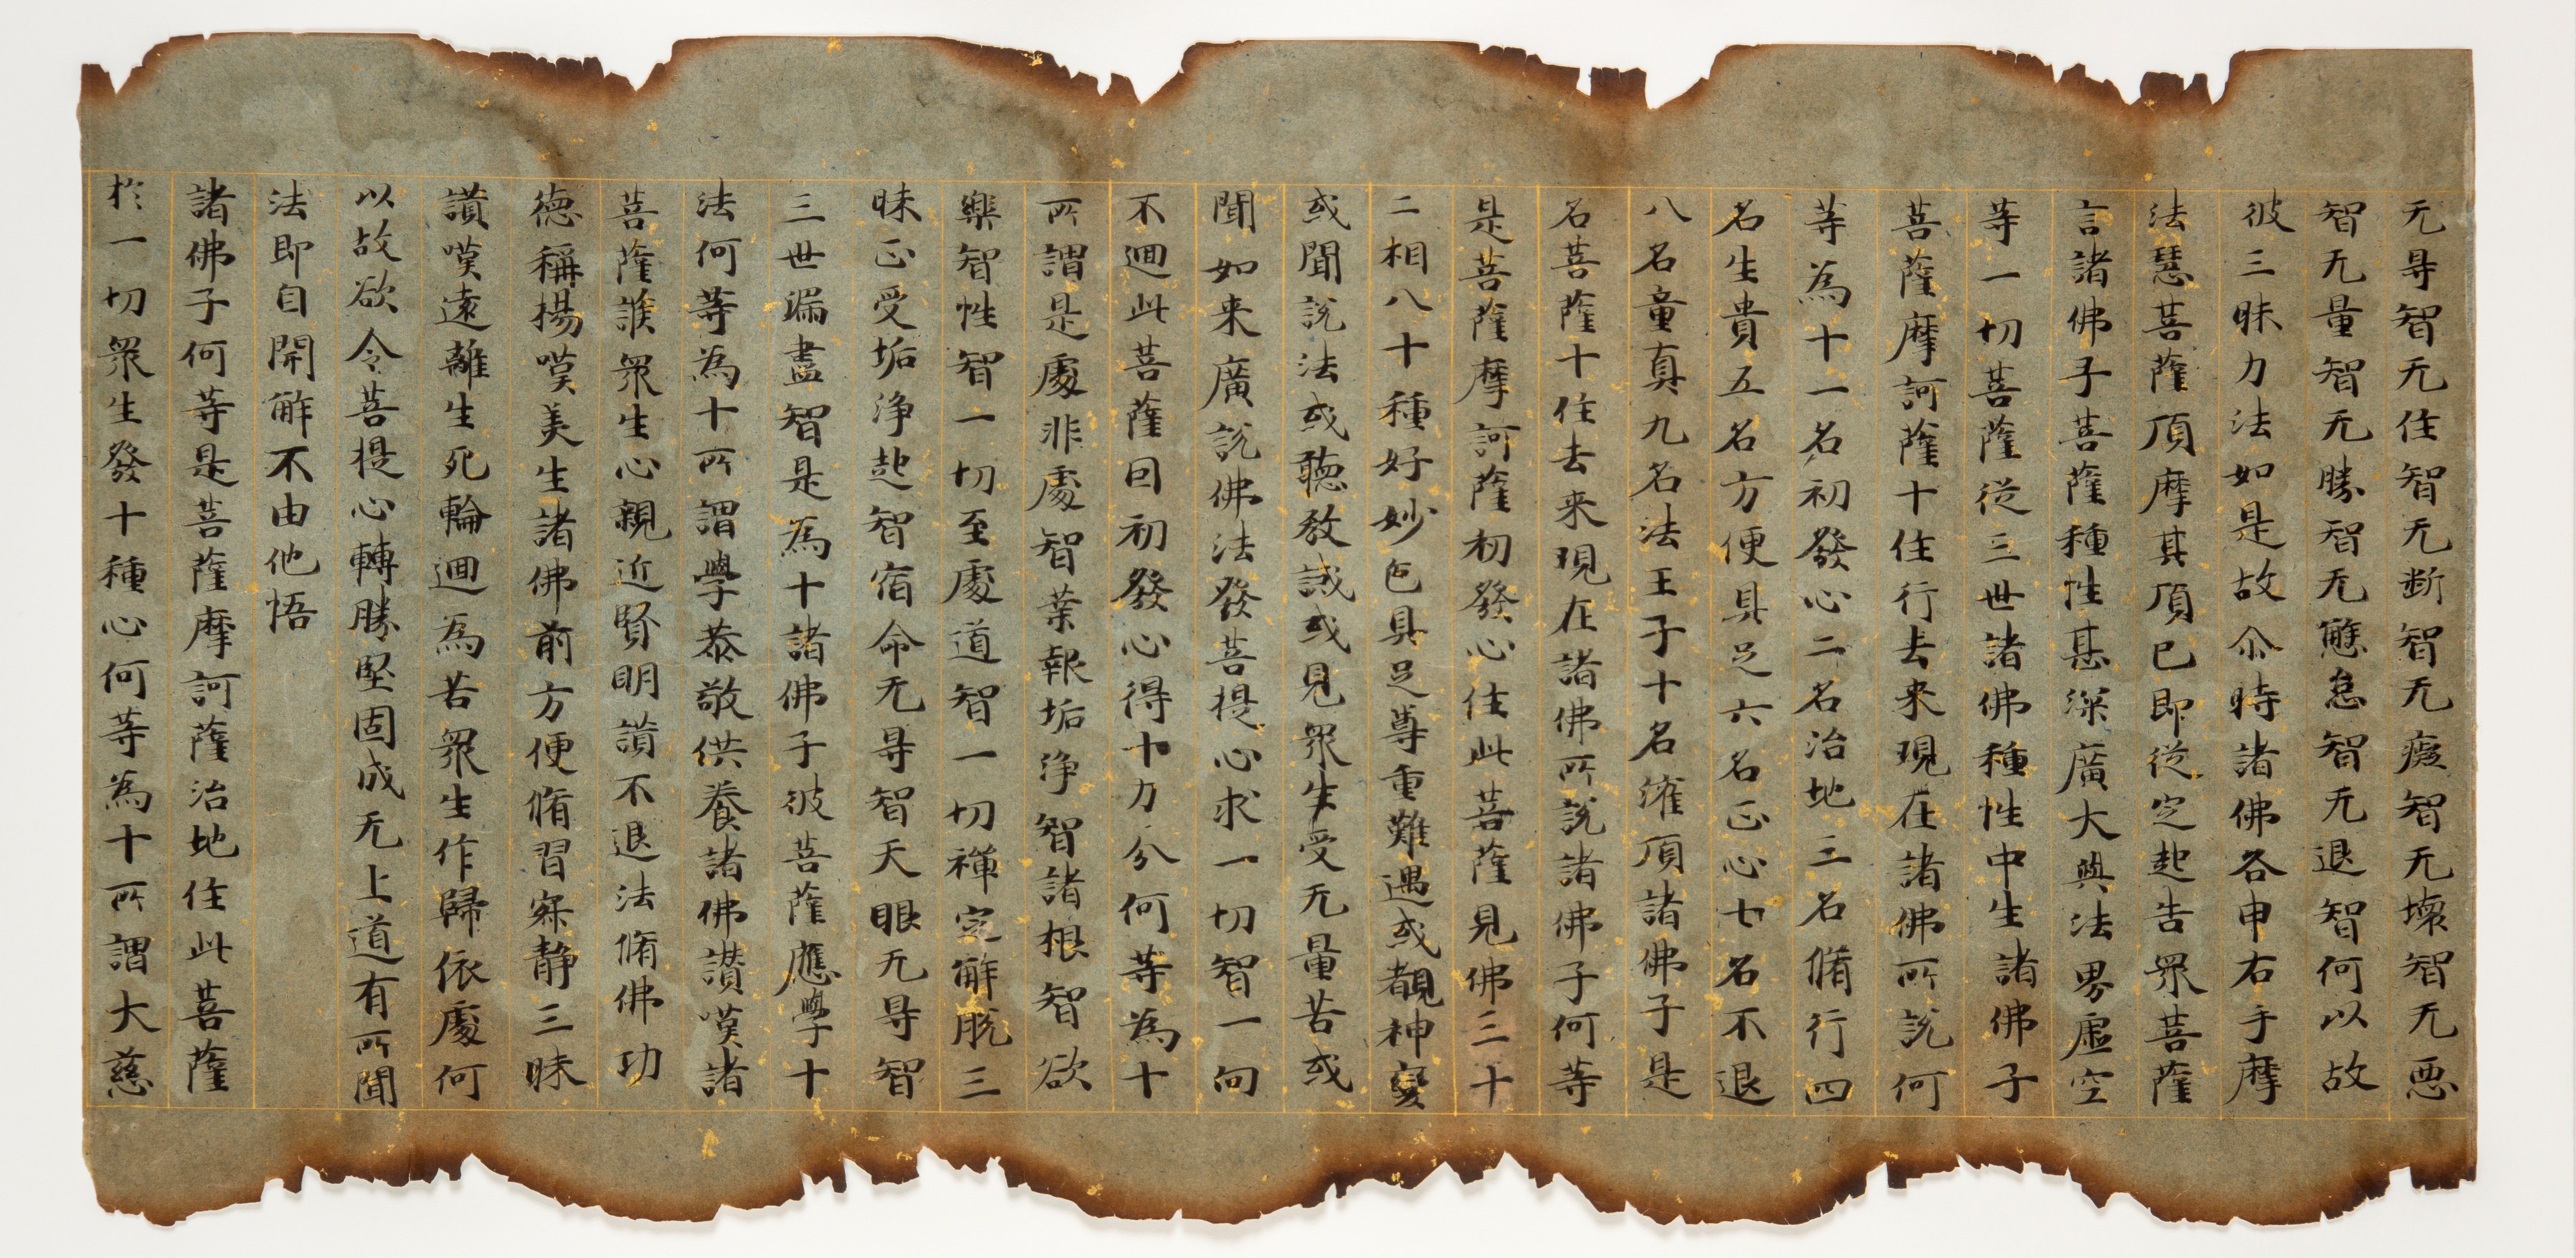 无㝵智无住智无断智无癡智无壞智无悪
智无量智无勝智无懈怠智无退智何以故
彼三昧力法如是故尒時諸佛各申右手摩
法慧菩薩頂摩其頂已即從定起告衆菩薩
言諸佛子菩薩種性甚深廣大與法界虛空
等一切菩薩從三世諸佛種性中生諸佛子
菩薩摩訶薩十住行去来現在諸佛所說何
等為十一名初發心二名治地三名脩行四
名生貴五名方便具足六名正心七名不退
八名童真九名法王子十名灌頂諸佛子是
名菩薩十住去来現在諸佛所說諸佛子何等
是菩薩摩訶薩初發心住此菩薩見佛三十
二相八十種好妙色具足尊重難遇或覩神變
或聞說法或聽教誡或見衆生受无量苦或
聞如来廣說佛法發菩提心求一切智一向
不迴此菩薩因初發心得十力分何等為十
所謂是處非處智業報垢淨智諸根智欲
樂智性智一切至處道智一切禪定解脫三
昧正受垢淨起智宿命无㝵智天眼无㝵智
三世漏盡智是為十諸佛子彼菩薩應學十
法何等為十所謂學恭敬供養諸佛讃嘆諸
菩薩護衆生心親近賢明讃不退法脩佛功
德稱揚嘆美生諸佛前方便脩習寂静三昧
讃嘆遠離生死輪迴為苦衆生作歸依處何
以故欲令菩提心轉勝堅固成无上道有所聞
法即自開解不由他悟
諸佛子何等是菩薩摩訶薩治地住此菩薩
於一切衆生發十種心何等為十所謂大慈